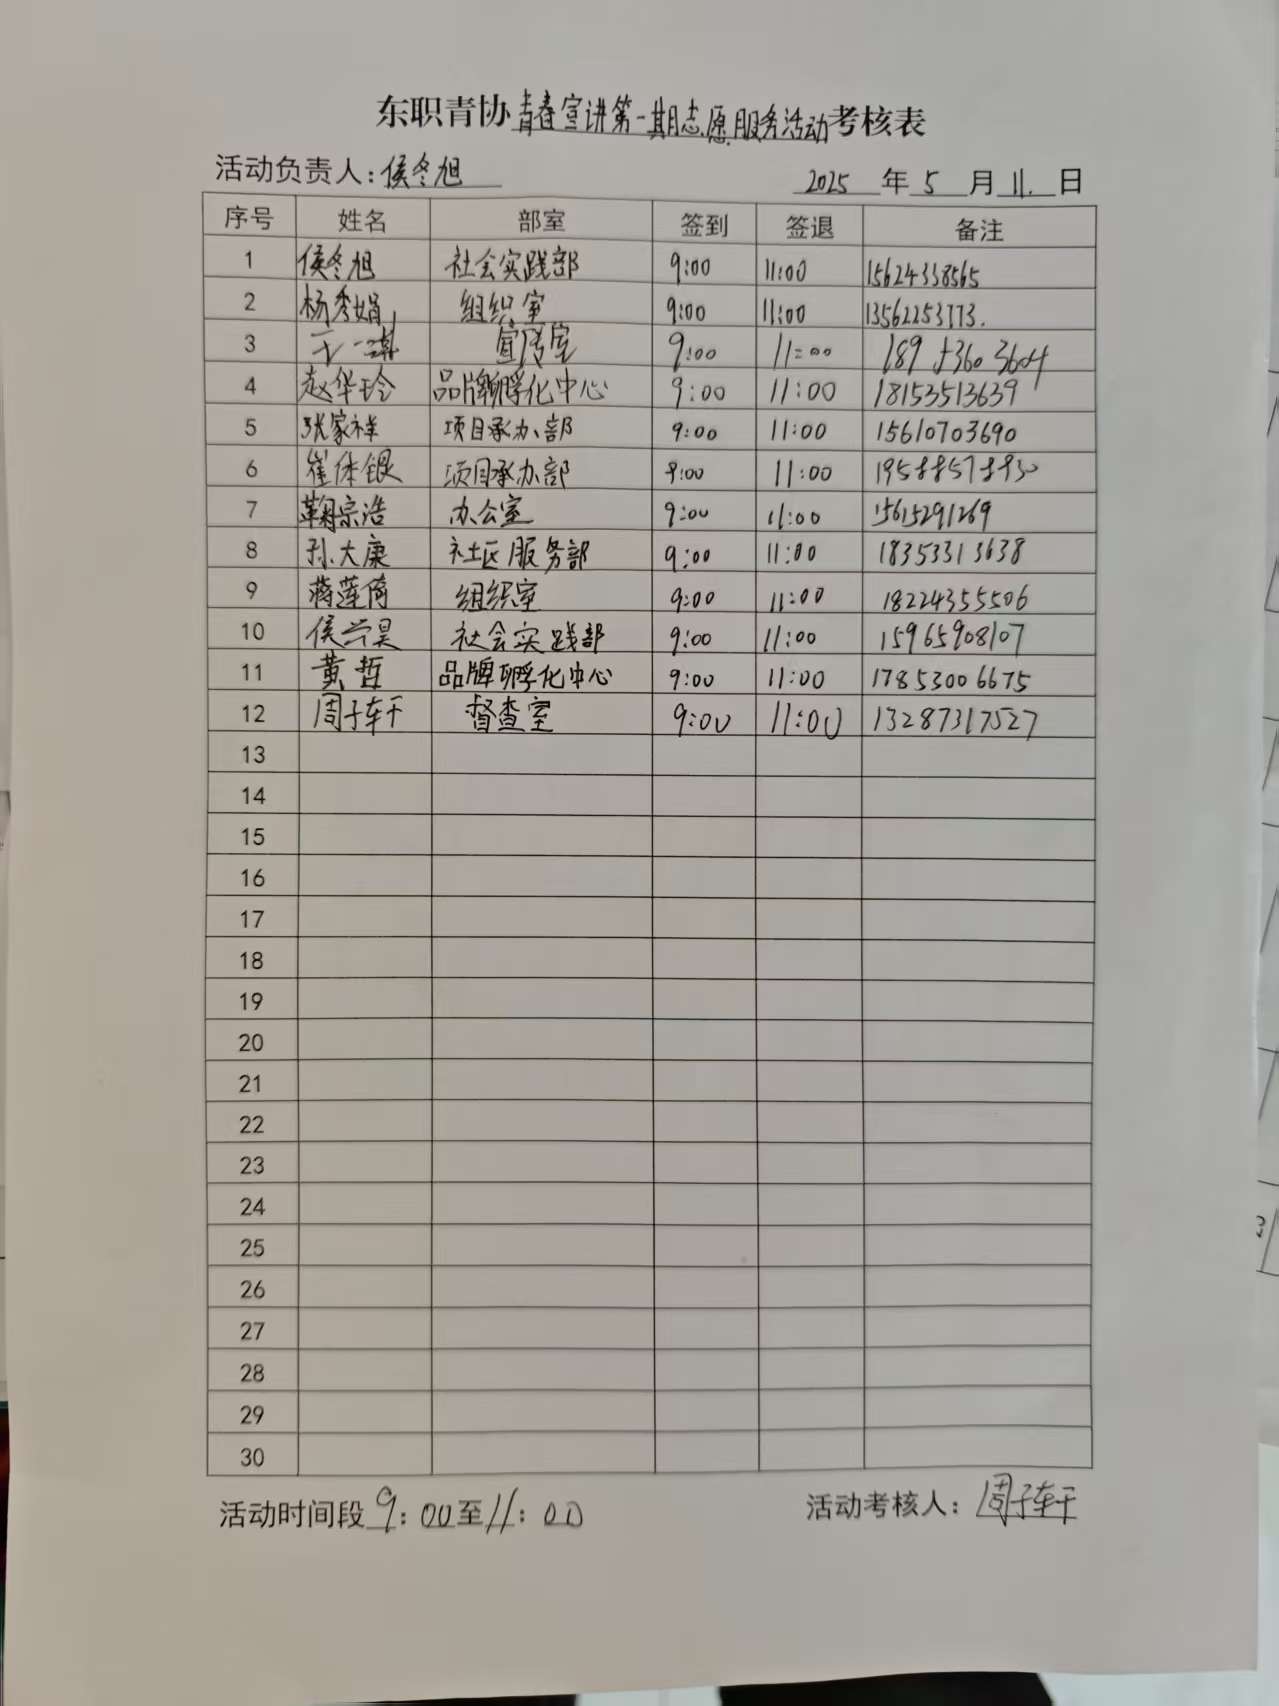 东职青协青春宣讲第一期志愿服务活动考核表
活动负责人:侯冬旭 2025 年 5 月 11. 日
序号 姓名 部室 签到 签退 备注
1 侯冬旭 社会实践部 9:00 11:00 15624338565
2 杨秀娟 组织室 9:00 11:00 13562253773.
3 宣传室 9:00 11:00
4 赵华玲 品牌孵化中心 9:00 11:00 18153513639
5 张家祥 项目承办部 9:00 11:00 15610703690
6 崔体银 项目承办部 9:00 11:00 19588578930
7 鞠宗浩 办公室 9:00 11:00 15615291269
8 孙大康 社区服务部 9:00 11:00 18353313638
9 蒋莲倚 组织室 9:00 11:00 18224355506
10 侯兴昊 社会实践部 9:00 11:00 15965908107
11 黄哲 品牌孵化中心 9:00 11:00 17853006675
12 周子轩 督查室 9:00 11:00 13287317527
13
14
15
16
17
18
19
20
21
22
23
24
25
26
27
28
29
30
活动时间段 9:00至11:00 活动考核人:周子轩